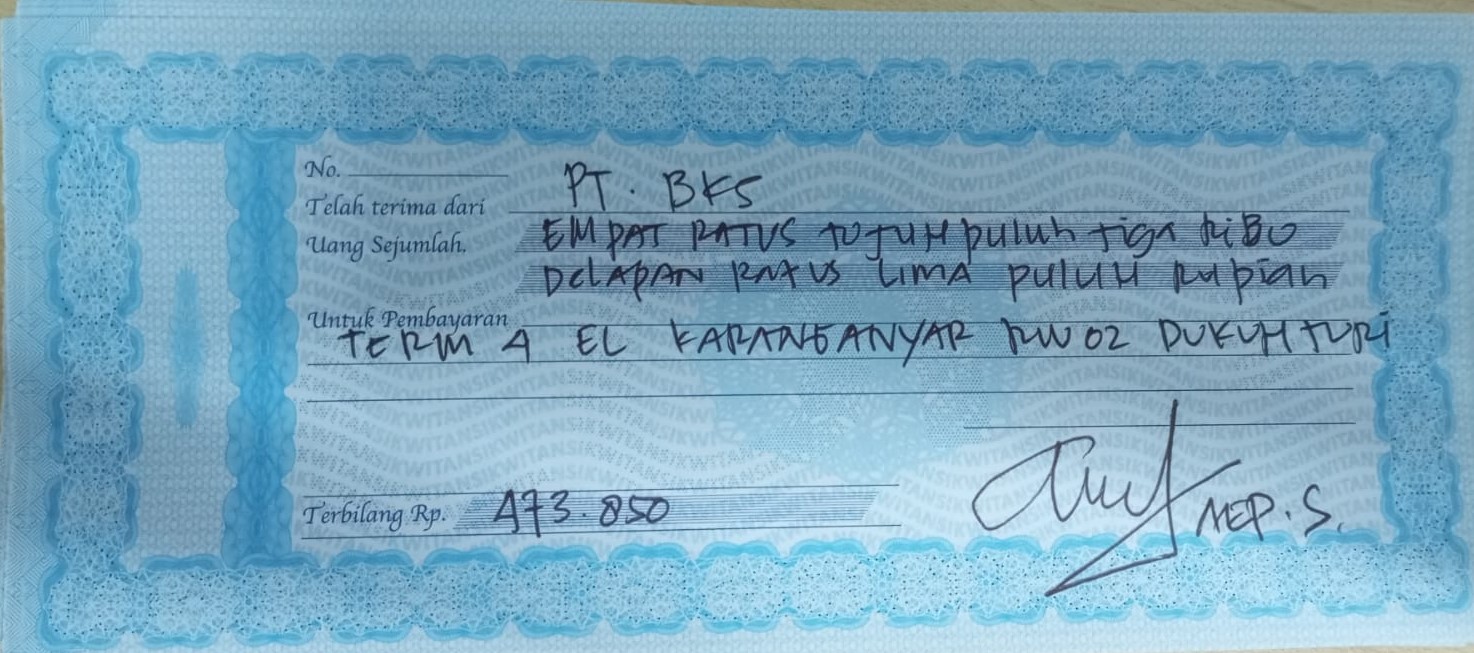 No.
Telah terima dari PT. BKS
Uang Sejumlah. EMPAT RATUS TUJUH puluh tiga RiBU
DELAPAN RATUS LIMA puluH Rupiah
Untuk Pembayaran
TERM 4 EL KARANGANYAR RW 02 DUKUHTURI
Terbilang Rp. 473.850
AEP.S.